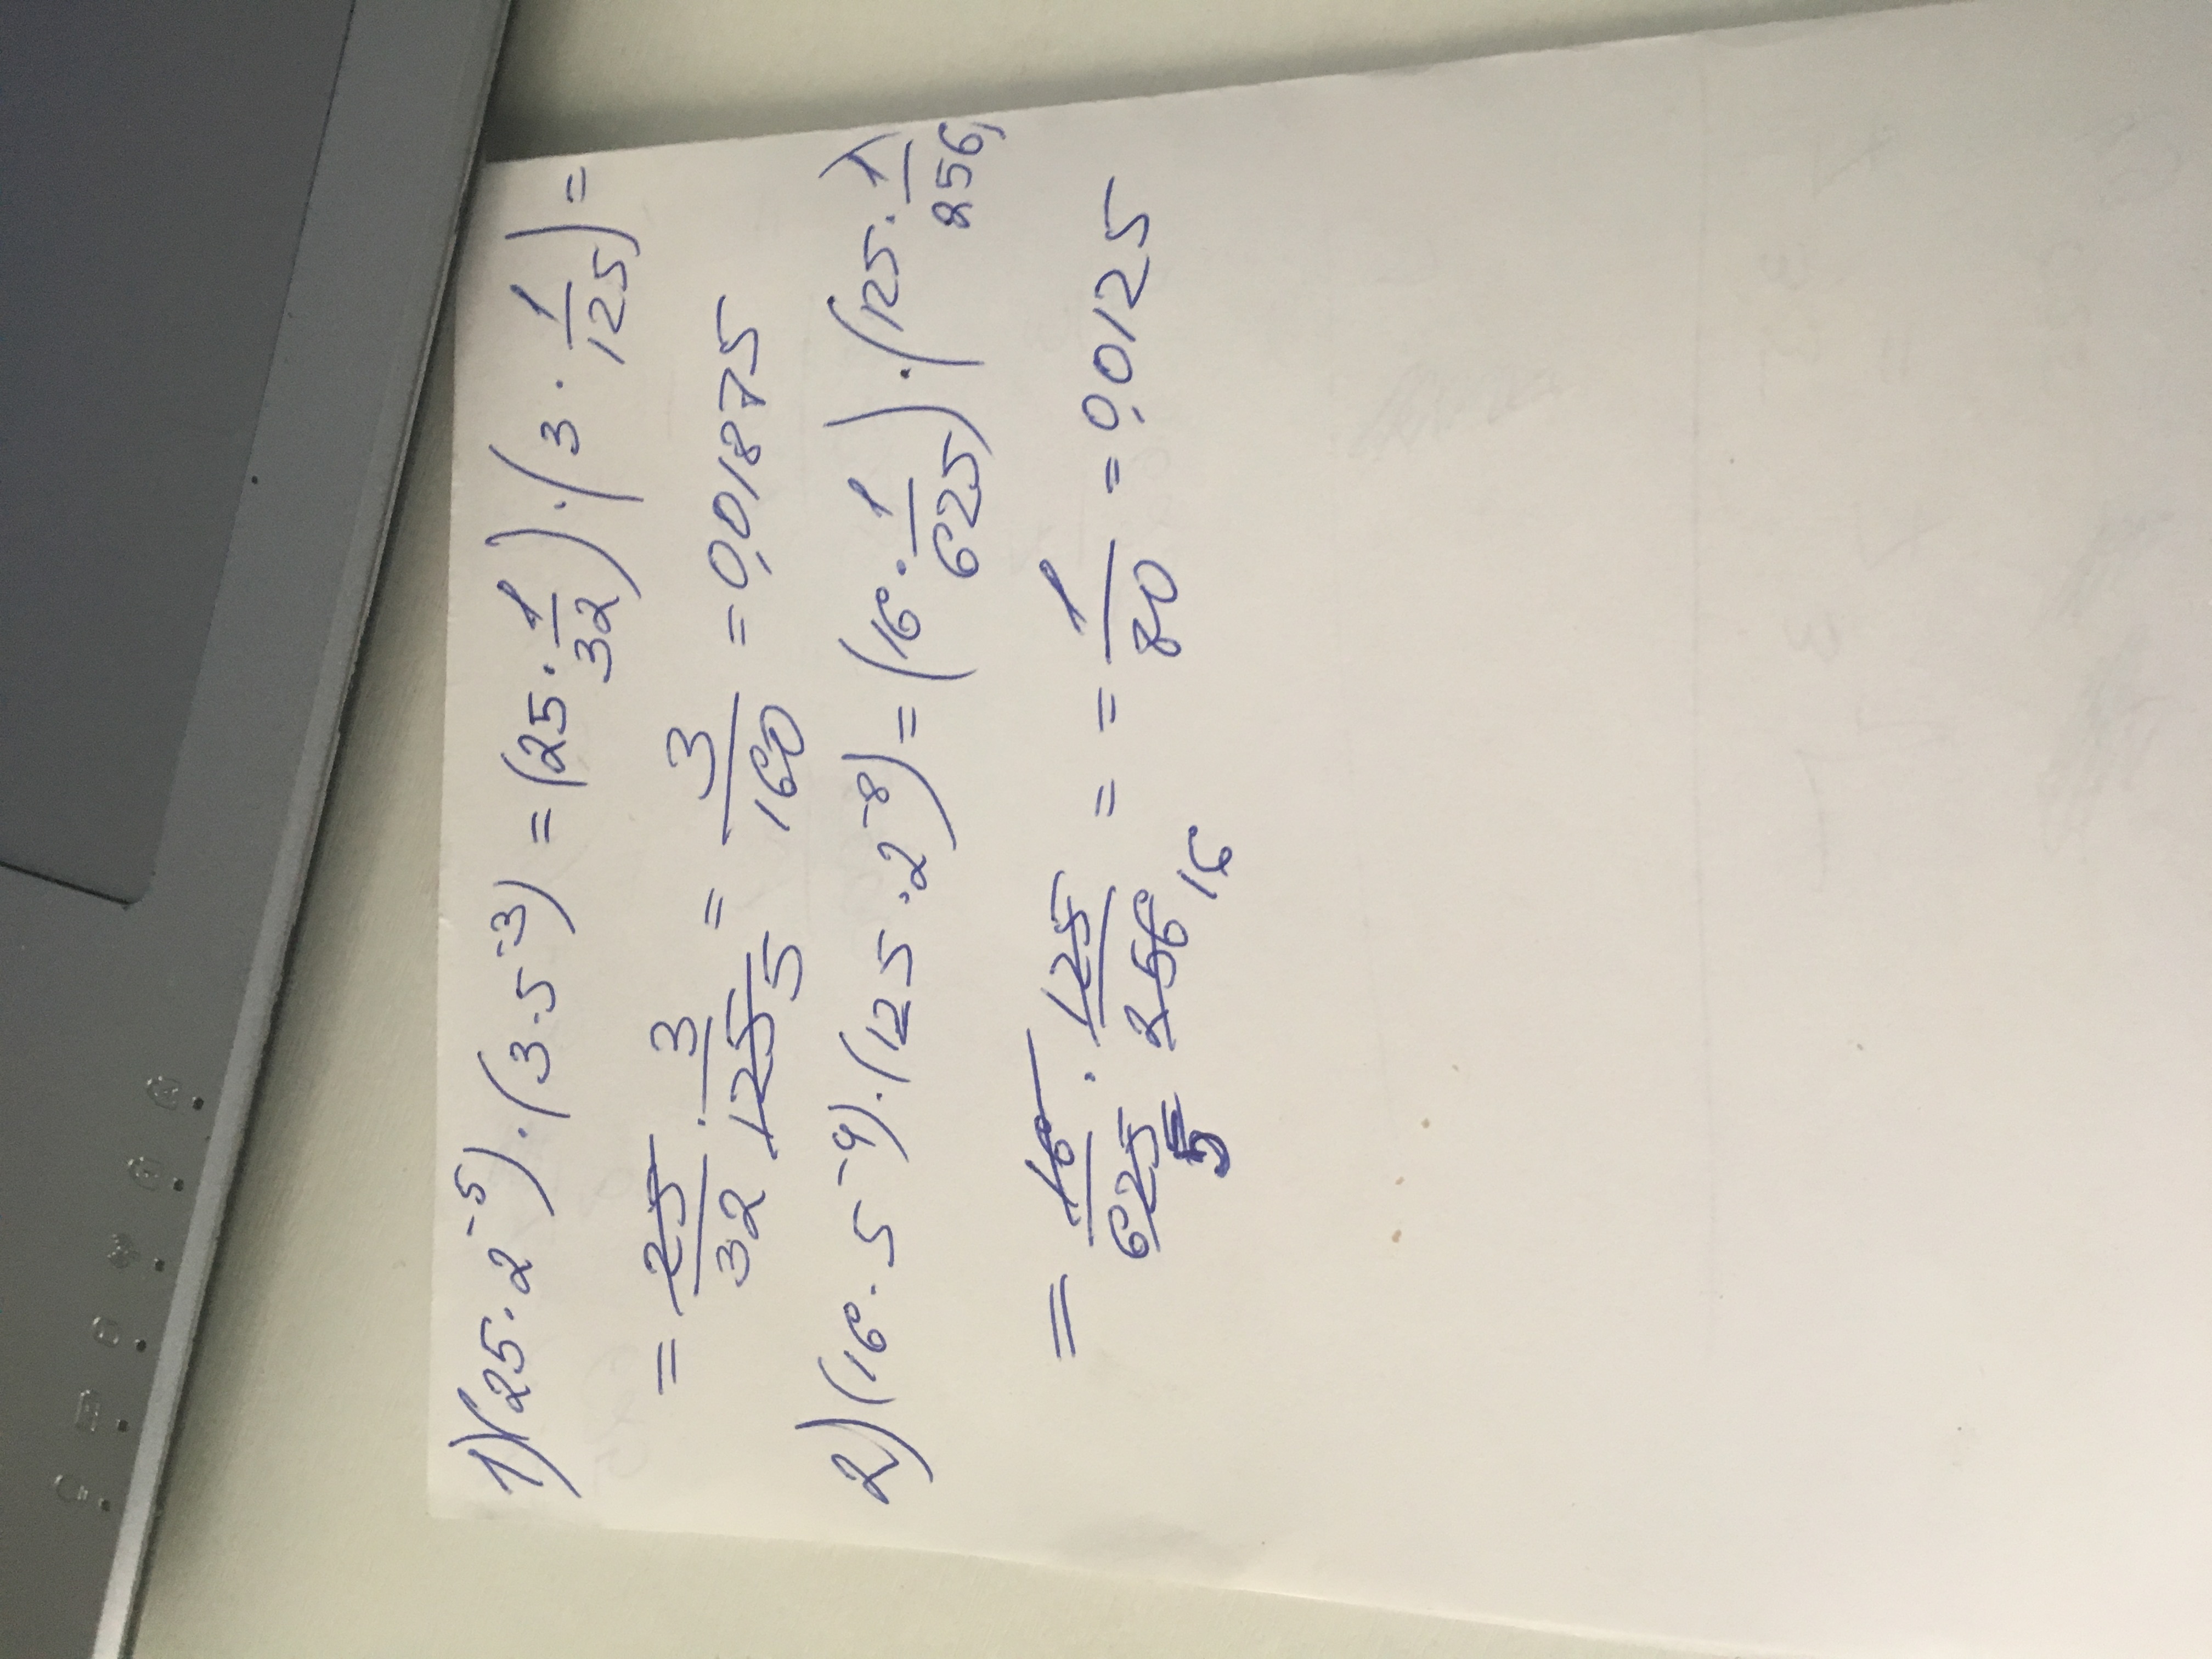 1) (25 · 2⁻⁵) · (3 · 5⁻³) = (25 · 1/32) · (3 · 1/125) =
= 25/32 · 3/125 5 = 3/160 = 0,01875
2) (16 · 5⁻⁴) · (125 · 2⁻⁸) = (16 · 1/625) · (125 · 1/256)
= 16/625 5 · 125/256 16 = = 1/80 = 0,0125